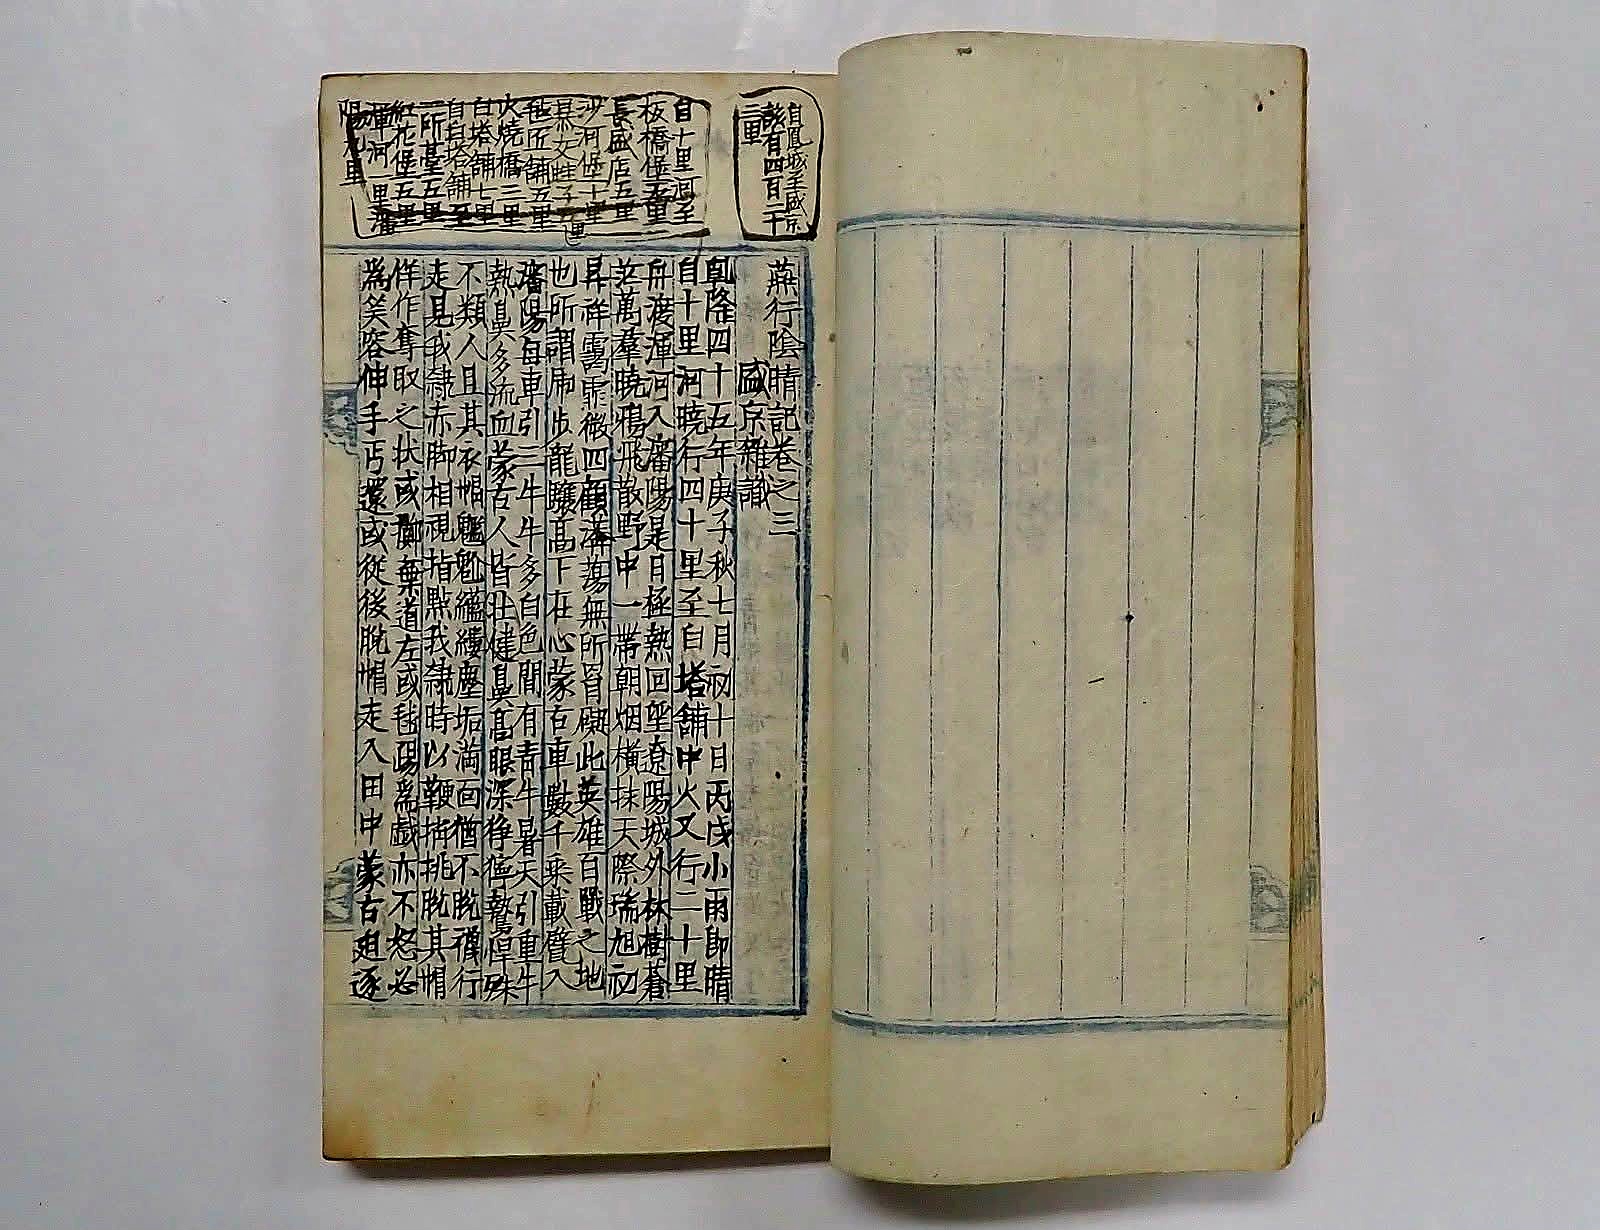 自鳳城至盛京
該有四百二十
二里
自十里河至
板橋堡五里
長盛店五里
沙河堡十里
暴交蛙子五里
氊匠舖五里
火燒橋三里
白塔舖七里
自白塔舖至
一所臺五里
紅花堡五里
渾河一里瀋
陽九里
燕行陰晴記卷之三
盛京雜識
乾隆四十五年庚子秋七月初十日丙戌小雨即晴
自十里河曉行四十里至白塔舖中火又行二十里
舟渡渾河入瀋陽是日極熱回望遼陽城外林樹蒼
茫萬羣曉鴉飛散野中一帶朝烟橫抹天際瑞旭初
昇祥靄霏微四顧漭蕩無所罥礙此英雄百戰之地
也所謂虎步龍驤高下在心蒙古車數千乘載甓入
瀋陽每車引三牛牛多白色間有青牛暑天引重牛
熱鼻多流血蒙古人皆壯健鼻高眼深狰獰鷙悍殊
不類人且其衣帽繿縷塵垢滿面猶不脫襪行
走見我隸赤脚相視指點我隸時以鞭挑脫其帽
佯作奪取之狀或擲棄道左或毬踼爲戲亦不怒必
爲笑容伸手丐還或從後脫帽走入田中蒙古廹逐